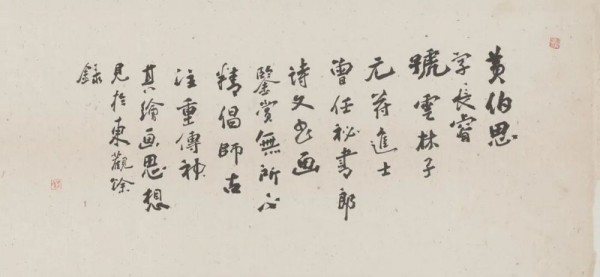 黄伯思
字長睿
號雲林子
元符進士
曾任祕書郎
詩文書画
鑒賞無所不
精倡師古
注重傳神
其繪画思想
見於東觀馀
録